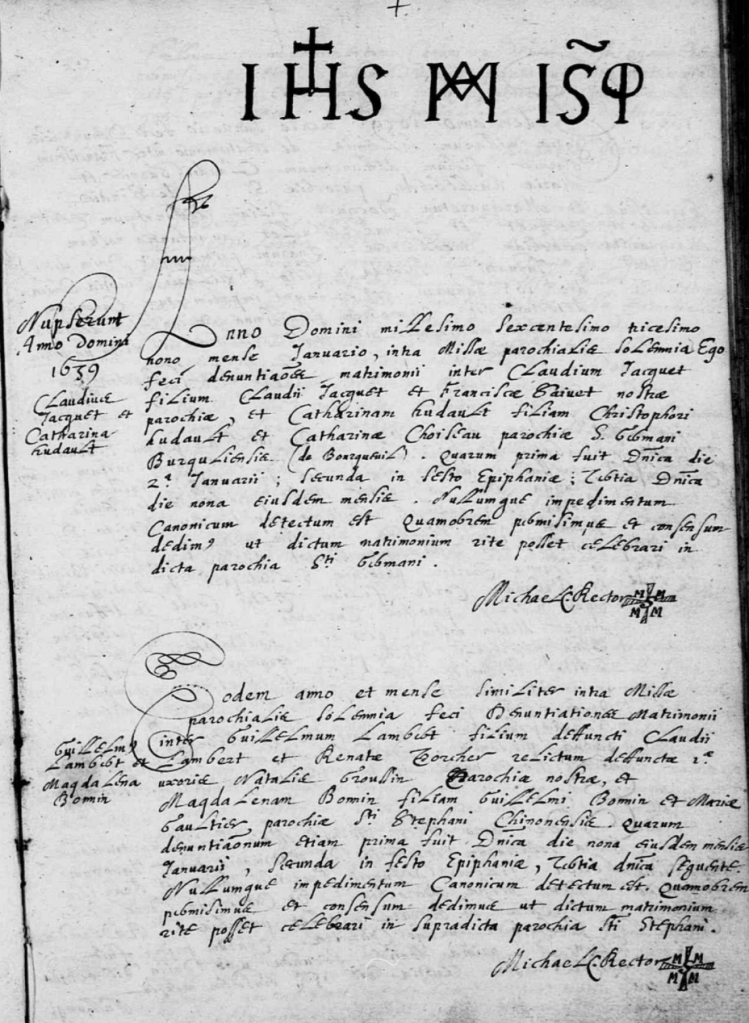 IHS MA
Nupserunt
Anno Domini
1639
Claudius
Jacquet et
Catharina
hudault
Anno Domini millesimo sexcentesimo tricesimo
nono mense Januario, intra Missæ parochialis solemnia Ego
feci denuntiaões matrimonii inter Claudium Jacquet
filium Claudii Jacquet et Franciscæ nostræ
parochiæ, et Catharinam hudault filiam Christophori
hudault et Catharinæ Choiseau parochiæ S. Germani
Burguliensis (de Bourgueil). Quarum prima fuit Dnica die
2ª Januarii; secunda in festo Epiphaniæ; tertia Dnica
die nona eiusdem mensis. Nulumque impedimentum
Canonicum detectum est Quamobrem permisimus et consensum
dedimꝰ ut dictum matrimonium rite posset celebrari in
dicta parochia Sti Germani.
Michael C. Rector
M M M M
Guillelmꝰ
Lambert et
Magdalena
Bonnin
Eodem anno et mense similiter intra Missæ
parochialis solemnia feci Denuntiationes Matrimonii
inter Guillelmum Lambert filium deffuncti Claudii
Lambert et Renatæ Torcher relictum deffunctæ 1æ
uxoris Nataliæ Broussin Parochiæ nostræ, et
Magdalenam Bonnin filiam Guillelmi Bonnin et Mariæ
Gaultier parochiæ Sti Stephani Chinonensis. Quarum
denuntiaõnum etiam prima fuit Dnica die nona eiusdem mensis
Januarii, secunda in festo Epiphaniæ, tertia dnica sequente.
Nullumque impedimentum Canonicum detectum est. Quamobrem
permisimus et consensum dedimus ut dictum matrimonium
rite posset celebrari in supradicta parochia Sti Stephani.
Michael C. Rector
M M M M